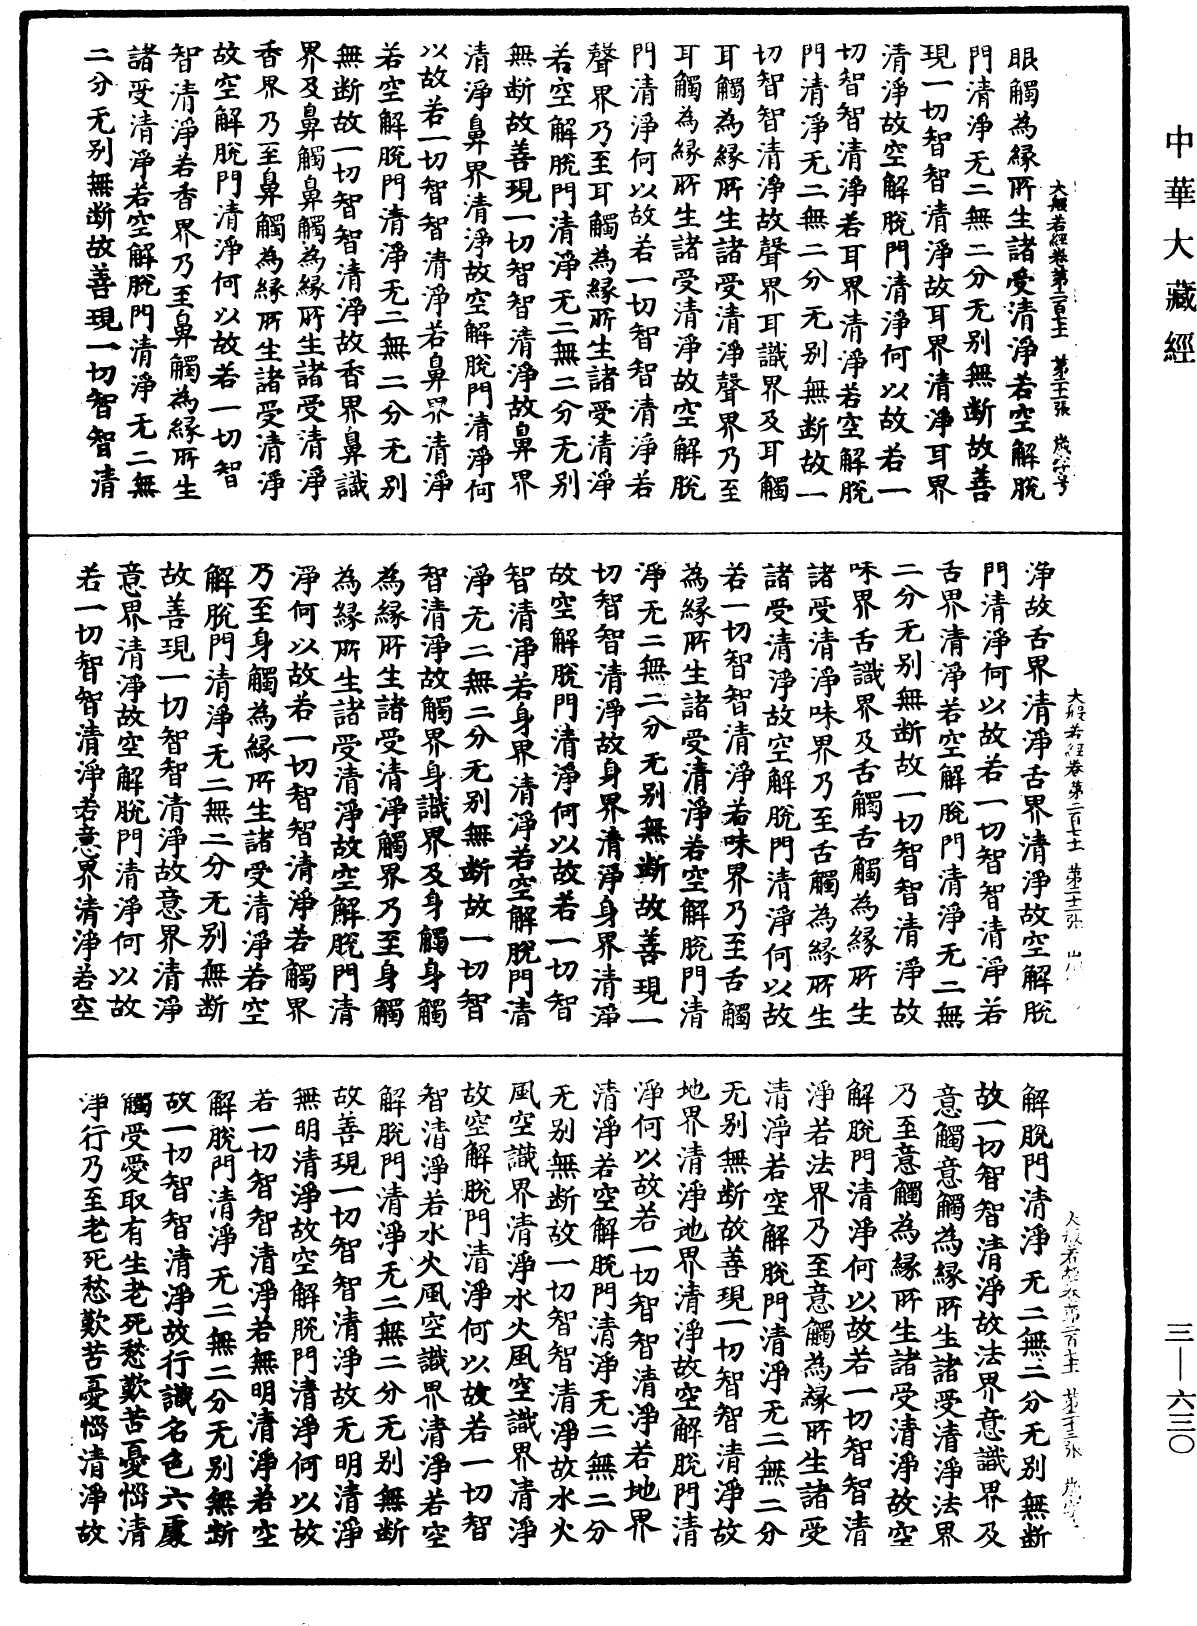 中華大藏經
眼觸為緣所生諸受清淨若空解脫
大般若經卷第二百七十 第二十一張 歲字号
門清淨无二無二分无别無断故善
現一切智智清淨故耳界清淨耳界
清淨故空解脫門清淨何以故若一
切智智清淨若耳界清淨若空解脫
門清淨无二無二分无别無断故一
切智智清淨故聲界耳識界及耳觸
耳觸為緣所生諸受清淨聲界乃至
耳觸為緣所生諸受清淨故空解脫
門清淨何以故若一切智智清淨若
聲界乃至耳觸為緣所生諸受清淨
若空解脫門清淨无二無二分无别
無断故善現一切智智清淨故鼻界
清淨鼻界清淨故空解脫門清淨何
以故若一切智智清淨若鼻界清淨
若空解脫門清淨无二無二分无别
無断故一切智智清淨故香界鼻識
界及鼻觸鼻觸為緣所生諸受清淨
香界乃至鼻觸為緣所生諸受清淨
故空解脫門清淨何以故若一切智
智清淨若香界乃至鼻觸為緣所生
諸受清淨若空解脫門清淨无二無
二分无别無断故善現一切智智清
淨故舌界清淨舌界清淨故空解脫
大般若經卷第二百七十 第二十二張
門清淨何以故若一切智智清淨若
舌界清淨若空解脫門清淨无二無
二分无别無断故一切智智清淨故
味界舌識界及舌觸舌觸為緣所生
諸受清淨味界乃至舌觸為緣所生
諸受清淨故空解脫門清淨何以故
若一切智智清淨若味界乃至舌觸
為緣所生諸受清淨若空解脫門清
淨无二無二分无别無断故善現一
切智智清淨故身界清淨身界清淨
故空解脫門清淨何以故若一切智
智清淨若身界清淨若空解脫門清
淨无二無二分无别無断故一切智
智清淨故觸界身識界及身觸身觸
為緣所生諸受清淨觸界乃至身觸
為緣所生諸受清淨故空解脫門清
淨何以故若一切智智清淨若觸界
乃至身觸為緣所生諸受清淨若空
解脫門清淨无二無二分无别無断
故善現一切智智清淨故意界清淨
意界清淨故空解脫門清淨何以故
若一切智智清淨若意界清淨若空
解脫門清淨无二無二分无别無断
大般若經卷第二百七十 第二十三張 歲字
故一切智智清淨故法界意識界及
意觸意觸為緣所生諸受清淨法界
乃至意觸為緣所生諸受清淨故空
解脫門清淨何以故若一切智智清
淨若法界乃至意觸為緣所生諸受
清淨若空解脫門清淨无二無二分
无别無断故善現一切智智清淨故
地界清淨地界清淨故空解脫門清
淨何以故若一切智智清淨若地界
清淨若空解脫門清淨无二無二分
无别無断故一切智智清淨故水火
風空識界清淨水火風空識界清淨
故空解脫門清淨何以故若一切智
智清淨若水火風空識界清淨若空
解脫門清淨无二無二分无别無断
故善現一切智智清淨故无明清淨
無明清淨故空解脫門清淨何以故
若一切智智清淨若無明清淨若空
解脫門清淨无二無二分无别無断
故一切智智清淨故行識名色六處
觸受愛取有生老死愁歎苦憂惱清
淨行乃至老死愁歎苦憂惱清淨故
三—六三〇